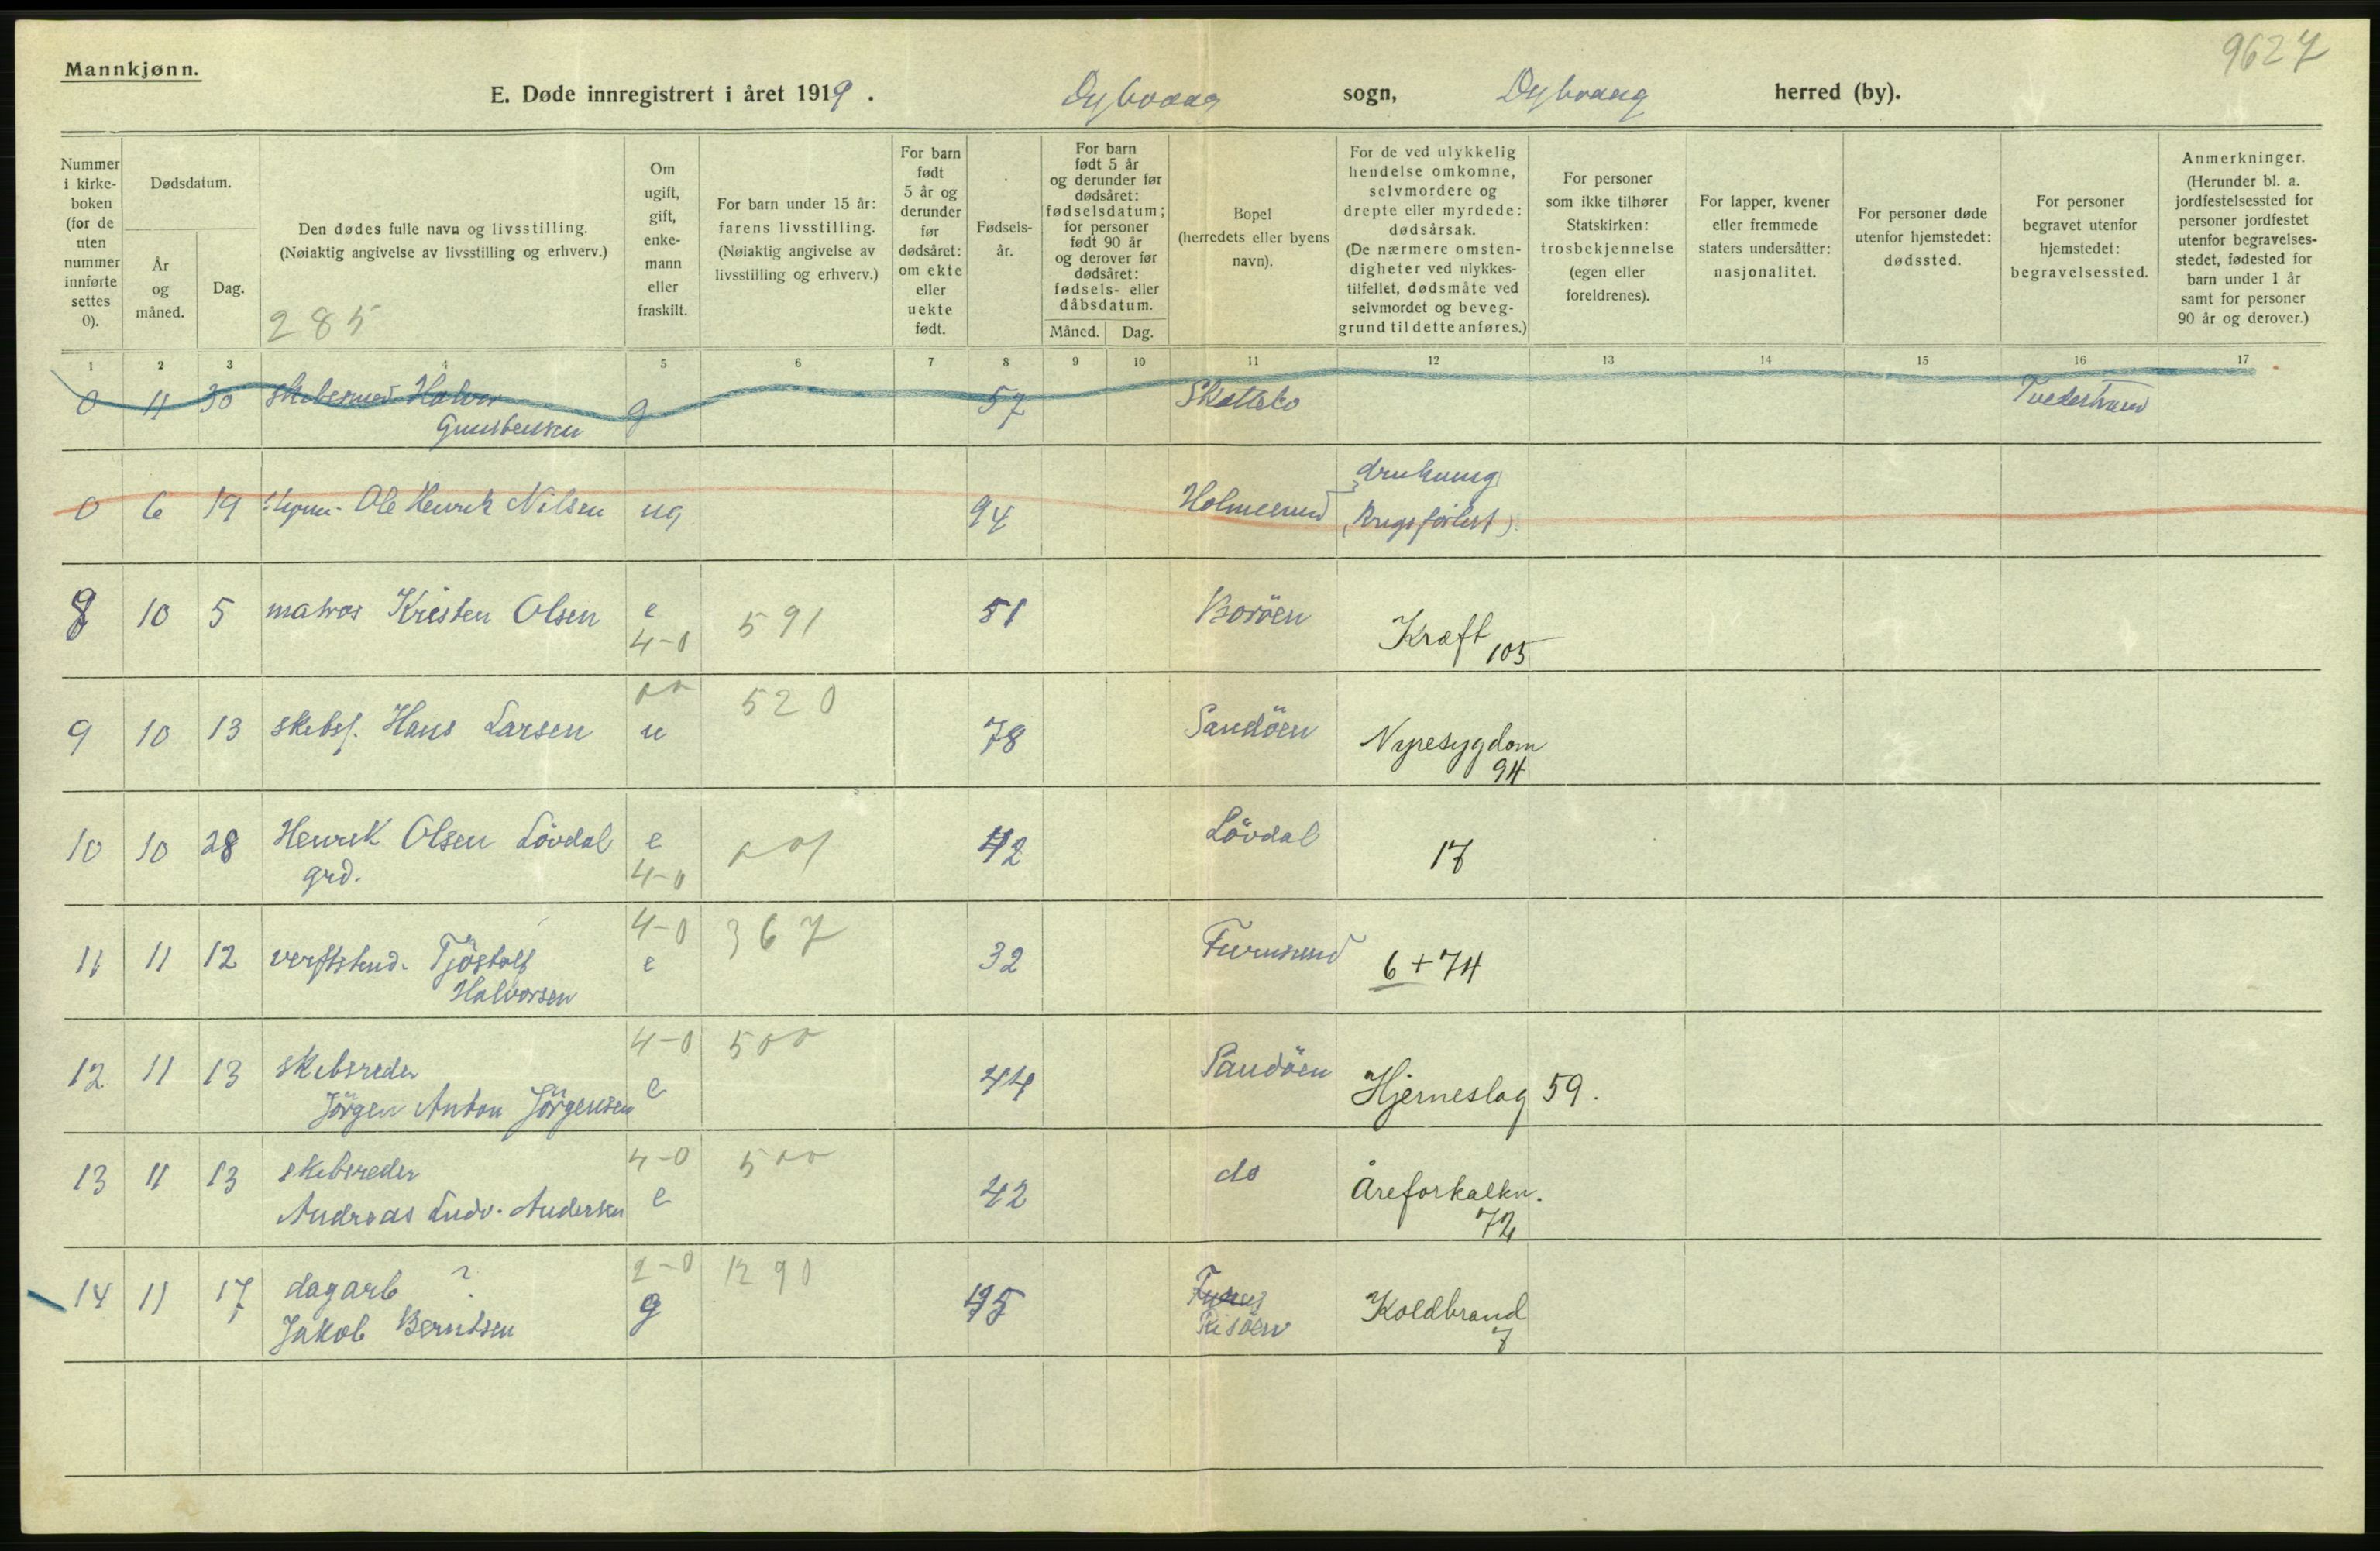 9627
Mannkjønn.
E. Døde innregistrert i året 1919. Dybvaag sogn, Dybvaag herred (by).
Nummer i kirke-boken (for de uten nummer innførte settes 0).
Dødsdatum.
År og måned.
Dag.
Den dødes fulle navn og livsstilling.
(Nøiaktig angivelse av livsstilling og erhverv.)
285
Om ugift, gift, enke-mann eller fraskilt.
For barn under 15 år: farens livsstilling. (Nøiaktig angivelse av livsstilling og erhverv.)
For barn født 5 år og derunder før dødsåret: om ekte eller uekte født.
Fødsels-år.
For barn født 5 år og derunder før dødsåret: fødselsdatum; for personer født 90 år og derover før dødsåret: fødsels- eller dåbsdatum.
Måned. Dag.
Bopel (herredets eller byens navn).
For de ved ulykkelig hendelse omkomne, selvmordere og drepte eller myrdede: dødsårsak. (De nærmere omsten-digheter ved ulykkes-tilfellet, dødsmåte ved selvmordet og beveg-grund til dette anføres.)
For personer som ikke tilhører Statskirken: trosbekjennelse (egen eller foreldrenes).
For lapper, kvener eller fremmede staters undersåtter: nasjonalitet.
For personer døde utenfor hjemstedet: dødssted.
For personer begravet utenfor hjemstedet: begravelsessted.
Anmerkninger. (Herunder bl. a. jordfestelsessted for personer jordfestet utenfor begravelses-stedet, fødested for barn under 1 år samt for personer 90 år og derover.)
1 2 3 4 5 6 7 8 9 10 11 12 13 14 15 16 17
0 11 30 Halvor g 57 Tvedestrand
Gunsbensen
0 6 19 Ole Henrik Nilsen ug 94 Holmesund drukning
(krigsforlist)
8 10 5 matros Kristen Olsen e 4-0 591 51 Boröen Kræft 105
9 10 13 skibsf. Hans Larsen u 520 78 Sandöen Nyresygdom 94
10 10 28 Henrik Olsen Lövdal e 4-0 42 Lövdal 17
grd.
11 11 12 Tjöstolf 4-0 e 367 32 Furusund 6+74
Halvorsen
12 11 13 skibsreder 4-0 e 500 44 Sandöen Hjerneslag 59.
Jörgen Anton Jörgensen
13 11 13 skibsreder 4-0 e 500 42 do Åreforkalkn. 72
Andreas Ludv. Andersen
14 11 17 dagarb ? 2-0 g 1290 45 Risöen Koldbrand 7
Jakob Berntsen